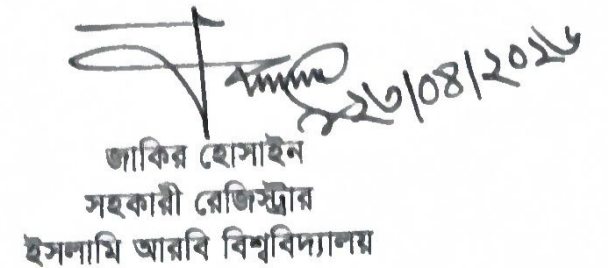 ২৩/০৪/২০২৬
জাকির হোসাইন
সহকারী রেজিস্ট্রার
ইসলামি আরবি বিশ্ববিদ্যালয়